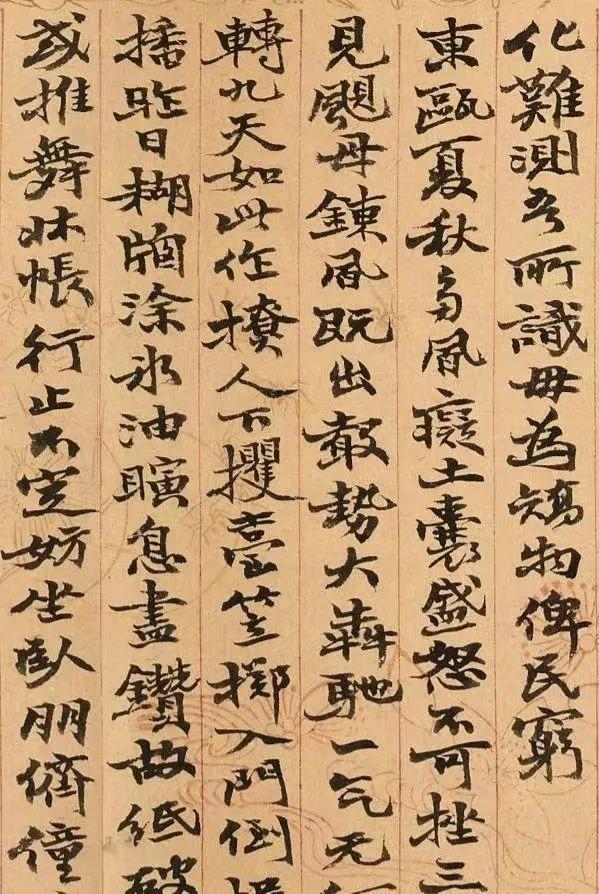 化難測吾所識毋為物俾民窮
東甌夏秋多風癡土囊盛怒不可挫三
見颶母鍊風既出鼓勢大犇馳一气无
轉九天如此作撩人下攫臺笠擲入門倒
播昨日糊牕涂氷油瞚息盡鑽故紙破
或推舞牀帳行止不定妨坐臥朋儕僮